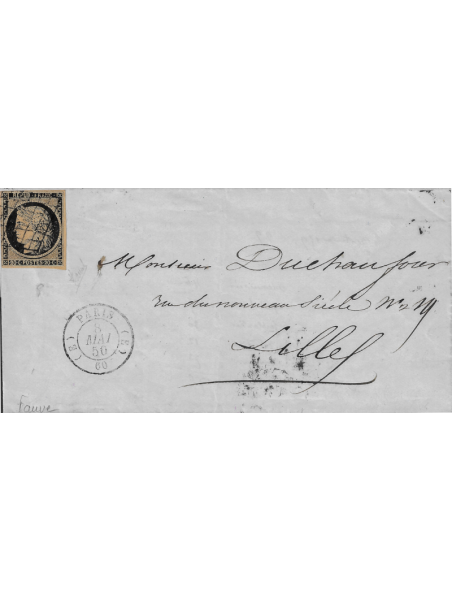 REPUB FRANC
20 C POSTES 20 C
Monsieur Duchaufour
rue du nouveau Siècle No 19
Lille
PARIS
(E) (E)
8
MAI
50
60
Fauve